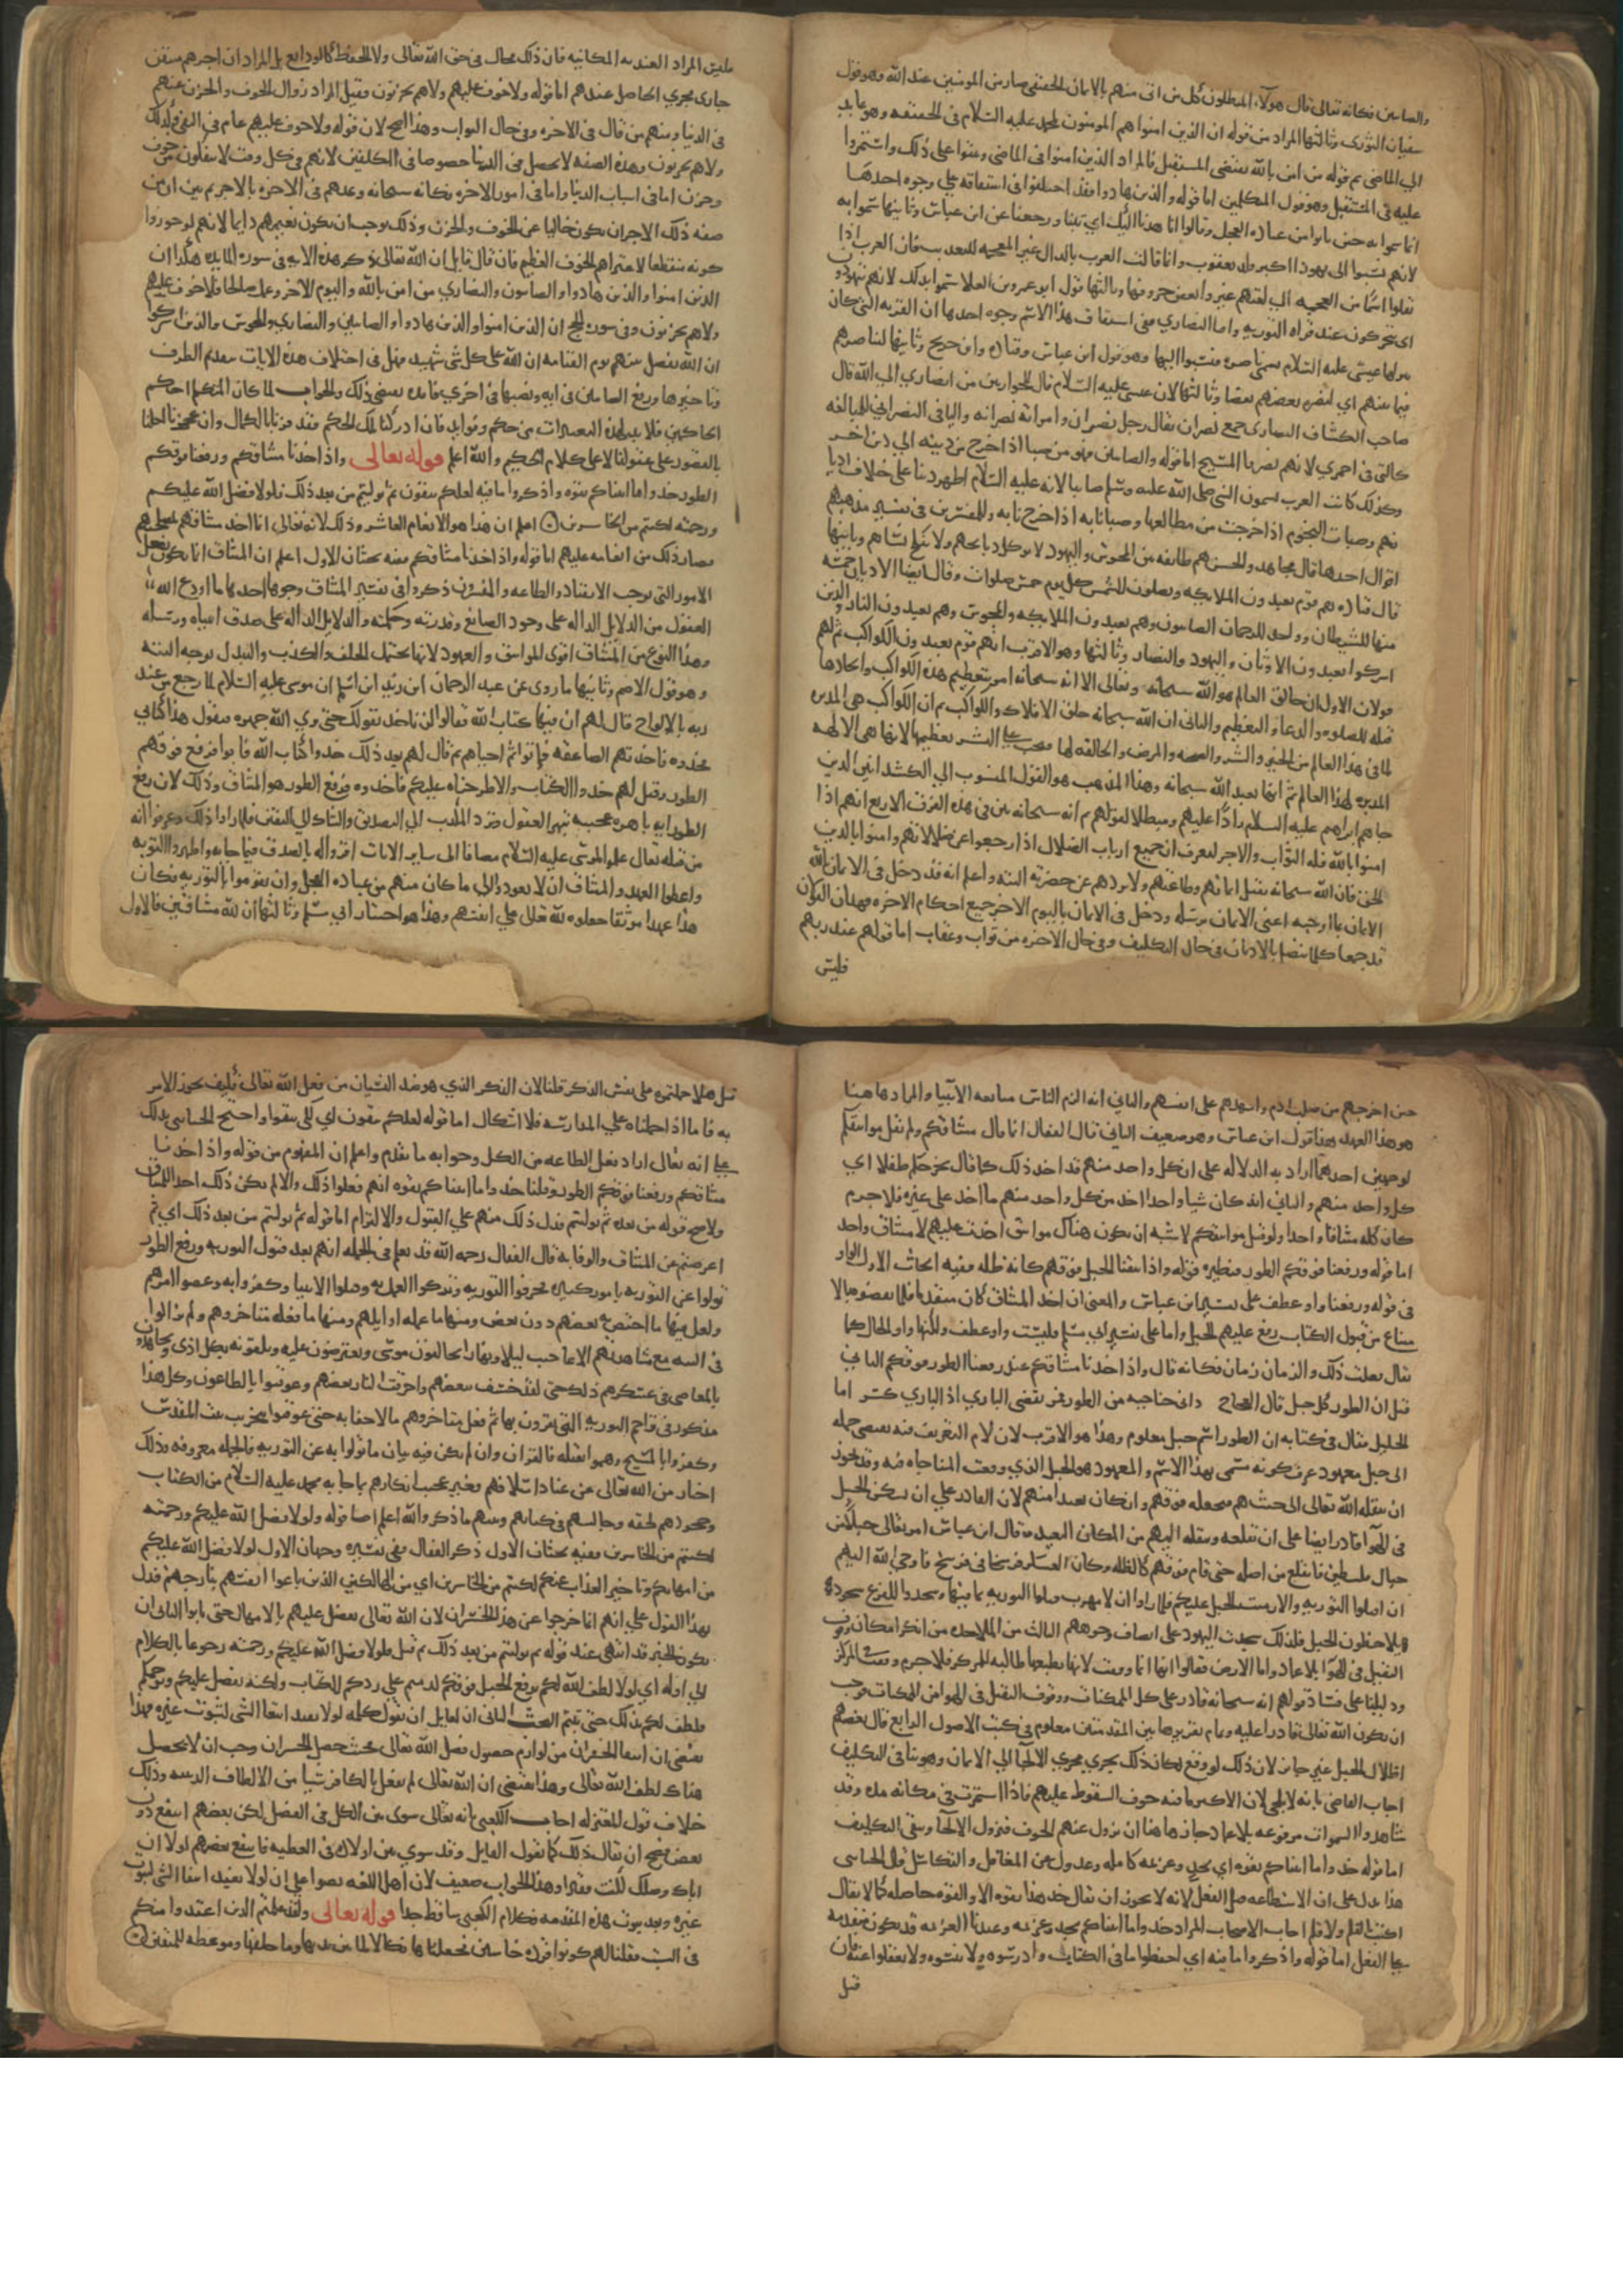 والصابين فكانه تعالى قال هولاء المبطلون كل من اتى منهم بالايمان الحقيقى صار من المومنين عند الله وهو قول
سفيان الثورى وثالثها المراد من قوله ان الذين امنوا هم المومنون بمحمد عليه السلام فى الحقيقه وهو عايد
الى الماضى ثم قوله من امن بالله يقتضى المستقبل فالمراد الذين امنوا فى الماضى وثبتوا على ذلك واستمروا
عليه فى المستقبل وهو قول المتكلمين اما قوله والذين هادوا فقد اختلفوا فى اشتقاقه على وجوه احدها
انما سموا به حين تابوا من عبادة العجل وقالوا انا هدنا اليك اى تبنا ورجعنا عن ابن عباس وثانيها سموا به
لانهم نسبوا الى يهودا اكبر ولد يعقوب وانما قالت العرب بالدال غير المعجمه للتعريب فان العرب اذا
نقلوا اسما من العجميه الى لغتهم غيروا بعض حروفها وثالثها قول ابو عمرو بن العلا سموا بذلك لانهم يتهودون
اى يتحركون عند قراه التوريه واما النصارى ففى اشتقاق هذا الاسم وجوه احدها ان القريه التى كان
ينزلها عيسى عليه السلام تسمى ناصره فنسبوا اليها وهو قول ابن عباس وقتاده وابن جريج وثانيها لتناصرهم
فيما بينهم اى لنصره بعضهم بعضا وثالثها لان عيسى عليه السلام قال للحواريين من انصارى الى الله قال
صاحب الكشاف النصارى جمع نصران يقال رجل نصران وامراة نصرانه والياء فى النصرانى للمبالغه
كالتى فى احمرى لانهم نصروا المسيح اما قوله والصابين فهو من صبا اذا خرج من دينه الى دين اخر
وكذلك كانت العرب يسمون النبى صلى الله عليه وسلم صابيا لانه عليه السلام اظهر دينا على خلاف اديا
نهم وصبات النجوم اذا خرجت من مطالعها وصبانا به اذا خرجنا به وللمفسرين فى تفسير مذهبهم
اقوال احدها قال مجاهد والحسن هم طايفه من المجوس واليهود لا توكل ذبايحهم ولا تنكح نساهم وثانيها
قال قتاده هم قوم يعبدون الملايكه ويصلون للشمس كل يوم خمس صلوات وقال ايضا الاديان خمسه
منها للشيطان وواحد للرحمان الصابيون وهم يعبدون الملايكه والمجوس وهم يعبدون النار والذين
اشركوا يعبدون الاوثان واليهود والنصارى وثالثها وهو الاقرب انهم قوم يعبدون الكواكب ثم لهم
قولان الاول ان خالق العالم هو الله سبحانه وتعالى الا انه سبحانه امر بتعظيم هذه الكواكب واتخاذها
قبله للصلوه والدعا والتعظيم والثانى ان الله سبحانه خلق الافلاك والكواكب ثم ان الكواكب هى المدبره
لما فى هذا العالم من الخير والشر والصحه والمرض والخالقه لها فيجب على البشر تعظيمها لانها هى الالهه
المدبره لهذا العالم ثم انها تعبد الله سبحانه وهذا المذهب هو القول المنسوب الى الكشدانيين الذين
جاهم ابراهيم عليه السلام رادا عليهم ومبطلا لقولهم ثم انه سبحانه بين فى هذه الفرق الاربع انهم اذا
امنوا بالله فله الثواب والاجر ليعرف ان جميع ارباب الضلال اذا رجعوا عن ضلالهم وامنوا بالدين
الحق فان الله سبحانه يقبل ايمانهم وطاعتهم ولا يردهم عن حضرته البته واعلم انه قد دخل فى الايمان بالله
الايمان بما اوجبه اعنى الايمان برسله ودخل فى الايمان باليوم الاخر جميع احكام الاخره فهذان القولان
قد جمعا كلما يتصل بالاديان فى حال التكليف وفى حال الاخره من ثواب وعقاب اما قوله عند ربهم
فليس
فليس المراد العنديه المكانيه فان ذلك محال فى حق الله تعالى ولا الحفظ كالودايع بل المراد ان اجرهم متيقن
جارى مجرى الحاصل عندهم اما قوله ولا خوف عليهم ولا هم يحزنون وقيل المراد زوال الخوف والحزن عنهم
فى الدنيا ومنهم من قال فى الاخره وفى حال الثواب وهذا اصح لان قوله ولا خوف عليهم عام فى النفى وكذلك
ولا هم يحزنون وهذه الصفه لا تحصل فى الدنيا خصوصا فى المكلفين لانهم فى كل وقت لا ينفكون من خوف
وحزن اما فى اسباب الدنيا واما فى امور الاخره فكانه سبحانه وعدهم فى الاخره بالاجر ثم بين ان من
صفه ذلك الاجر ان يكون خاليا عن الخوف والحزن وذلك يوجب ان يكون نعيمهم دايما لانهم لو جوزوا
كونه منقطعا لاعتراهم الخوف العظيم فان قال قايل ان الله تعالى ذكر هذه الايه فى سوره المايده هكذا ان
الذين امنوا والذين هادوا والصابيون والنصارى من امن بالله واليوم الاخر وعمل صالحا فلا خوف عليهم
ولا هم يحزنون وفى سوره الحج ان الذين امنوا والذين هادوا والصابين والنصارى والمجوس والذين اشركوا
ان الله يفصل بينهم يوم القيامه ان الله على كل شى شهيد فهل فى اختلاف هذه الايات بتقديم الطرف
وتاخيرها ورفع الصابيين فى ايه ونصبها فى اخرى فايده تقتضى ذلك والجواب لما كان المتكلم احكم
الحاكمين فلا بد لهذه التغييرات من حكم وفوايد فان ادركنا تلك الحكم فقد فزنا بالكمال وان عجزنا احلنا
بالقصور على عقولنا لا على كلام الحكيم والله اعلم قوله تعالى واذ اخذنا ميثاقكم ورفعنا فوقكم
الطور خذوا ما اتيناكم بقوه واذكروا ما فيه لعلكم تتقون ثم توليتم من بعد ذلك فلولا فضل الله عليكم
ورحمته لكنتم من الخاسرين اعلم ان هذا هو الانعام العاشر وذلك لانه تعالى انما اخذ ميثاقهم لمصلحتهم
فصار ذلك من انعامه عليهم اما قوله واذ اخذنا ميثاقكم ففيه بحثان الاول اعلم ان الميثاق انما يكون بفعل
الامور التى توجب الانقياد والطاعه والمفسرون ذكروا فى تفسير الميثاق وجوها احدها ما اودع الله
العقول من الدلايل الداله على وجود الصانع وقدرته وحكمته والدلايل الداله على صدق انبيايه ورسله
وهذا النوع من الميثاق اقوى المواثيق والعهود لانها لا تحتمل الخلف والكذب والتبدل بوجه البته
وهو قول الاصم وثانيها ما روى عن عبد الرحمان ابن زيد ابن اسلم ان موسى عليه السلام لما رجع من عند
ربه بالالواح قال لهم ان فيها كتاب الله فقالوا لن ناخذ بقولك حتى نرى الله جهره فيقول هذا كتابى
فخذوه فاخذتهم الصاعقه فماتوا ثم احياهم ثم قال لهم بعد ذلك خذوا كتاب الله فابوا فرفع فوقهم
الطور وقيل لهم خذوا الكتاب والا طرحناه عليكم فاخذوه فرفع الطور هو الميثاق وذلك لان رفع
الطور ايه باهره عجيبه تبهر العقول وترد المكذب الى التصديق والشاك الى اليقين فلما راوا ذلك وعرفوا انه
من قبله تعالى علم الموسى عليه السلام مضافا الى ساير الايات اقروا له بالصدق فيما جا به واظهروا التوبه
واعطوا العهد والميثاق ان لا يعودوا الى ما كان منهم من عباده العجل وان يقوموا بالتوريه فكان
هذا عهدا موثقا جعلوه لله تعالى على انفسهم وهذا هو اختيار ابى مسلم وثالثها ان لله ميثاقين فالاول
حين اخرجهم من صلب ادم واشهدهم على انفسهم والثانى انه الزم الناس متابعه الانبيا والمراد هاهنا
هو هذا العهد وهذا قول ابن عباس وهو ضعيف الثانى قال القفال انما قال ميثاقكم ولم يقل مواثيقكم
لوجهين احدهما اراد به الدلاله على ان كل واحد منهم قد اخذ ذلك كما قال يخرجكم طفلا اى
كل واحد منهم والثانى انه كان شيا واحدا اخذ من كل واحد منهم ما اخذ على غيره فلا جرم
كان كله ميثاقا واحدا ولو قيل مواثيقكم لاشبه ان يكون هناك مواثيق اخذت عليهم لا ميثاق واحد
اما قوله ورفعنا فوقكم الطور فنظيره قوله واذ نتقنا الجبل فوقهم كانه ظله وفيه ابحاث الاول الواو
فى قوله ورفعنا واو عطف على تفسير ابن عباس والمعنى ان اخذ الميثاق كان متقدما فلما نقضوه بالا
متناع من قبول الكتاب رفع عليهم الجبل واما على تفسير ابى مسلم فليست واو عطف ولكنها واو الحال كما
يقال فعلت ذلك والزمان زمان فكانه قال واذ اخذنا ميثاقكم عند رفعنا الطور فوقكم الثانى
قيل ان الطور كل جبل قال العجاج دانى جناحيه من الطور فمر تقضى البازى اذ البازى كسر اما
الخليل فقال فى كتابه ان الطور اسم جبل معلوم وهذا هو الاقرب لان لام التعريف فيه تقتضى حمله
الى جبل معهود عرف كونه مسمى بهذا الاسم والمعهود هو الجبل الذى وقعت المناجاه فيه وقد يجوز
ان ينقله الله تعالى الى حيث هم فيجعله فوقهم وان كان بعيدا منهم لان القادر على ان يسكن الجبل
فى الهوا قادر ايضا على ان يقلعه وينقله اليهم من المكان البعيد وقال ابن عباس امر تعالى جبلا من
جبال فلسطين فانقلع من اصله حتى قام فوقهم كالظله وكان العسكر فرسخا فى فرسخ فاوحى الله اليهم
ان اقبلوا التوريه والا رميت الجبل عليكم فلما راوا ان لا مهرب قبلوا التوريه بما فيها وسجدوا للفزع سجودا
يلاحظون الجبل فلذلك سجدت اليهود على انصاف وجوههم الثالث من الملاحده من انكر امكان وقوف
الثقيل فى الهوا بلا عماد واما الارض فقالوا انها انما وقفت لانها بطبعها طالبه للمركز فلا جرم وقفت المركز
ودليلنا على فساد قولهم انه سبحانه قادر على كل الممكنات ووقوف الثقيل فى الهوا من الممكنات فوجب
ان يكون الله تعالى قادرا عليه وتمام تقرير هاتين المقدمتين معلوم فى كتب الاصول الرابع قال بعضهم
اظلال الجبل غير جايز لان ذلك لو وقع لكان ذلك يجرى مجرى الالجا الى الايمان وهو ينافى التكليف
اجاب القاضى بانه لا يلجى لان الاكثر ما فيه خوف السقوط عليهم فاذا استمرت فى مكانه مده وقد
شاهدوا السموات مرفوعه بلا عماد جاز هاهنا ان يزول عنهم الخوف فيزول الالجا ويبقى التكليف
اما قوله خذوا ما اتيناكم بقوه اى بجد وعزيمه كامله وعدول عن التغافل والتكاسل قال الجباى
هذا يدل على ان الاستطاعه قبل الفعل لانه لا يجوز ان يقال خذ هذا بقوه الا والقوه حاصله كما لا يقال
اكتب بالقلم ولا قلم اجاب الاصحاب المراد خذوا ما اتيناكم بجد وعزيمه وعندنا العزيمه قد تكون متقدمه
على الفعل اما قوله واذكروا ما فيه اى احفظوا ما فى الكتاب وادرسوه ولا تنسوه ولا تغفلوا عنه فان
قيل
قيل هلا حملتموه على نفس الذكر قلنا لان الذكر الذى هو ضد النسيان من فعل الله تعالى فكيف يجوز الامر
به فاما اذا حملناه على المدارسه فلا اشكال اما قوله لعلكم تتقون اى لكى تتقوا واحتج الجباى بذلك
على انه تعالى اراد فعل الطاعه من الكل وجوابه ما تقدم واعلم ان المفهوم من قوله واذ اخذنا
ميثاقكم ورفعنا فوقكم الطور وقلنا خذوا ما اتيناكم بقوه انهم فعلوا ذلك والا لم يكن ذلك اخذا للميثاق
ولا صح قوله من بعده ثم توليتم فدل ذلك منهم على القبول والالتزام اما قوله ثم توليتم من بعد ذلك اى ثم
اعرضتم عن الميثاق والوفا به قال القفال رحمه الله قد يعلم فى الجمله انهم بعد قبول التوريه ورفع الطور
تولوا عن التوريه بامور كثيره فحرفوا التوريه وتركوا العمل به وقتلوا الانبيا وكفروا به وعصوا امرهم
ولعل فيها ما اختص به بعضهم دون بعض ومنها ما عمله اوايلهم ومنها ما فعله متاخروهم ولم يزالوا
فى التيه مع مشاهدتهم الاعاجيب ليلا ونهارا يخالفون موسى ويعترضون عليه ويلقونه بكل اذى ويجاهرون
بالمعاصى فى عسكرهم ذلك حتى لقد خسف ببعضهم واحرقت النار بعضهم وعوقبوا بالطاعون وكل هذا
مذكور فى تراجم التوريه التى يقرون بها ثم فعل متاخروهم ما لا خفا به حتى عوقبوا بتخريب بيت المقدس
وكفروا بالمسيح وهموا بقتله فالقران وان لم يكن فيه بيان ما تولوا به عن التوريه فالجمله معروفه وذلك
اخبار من الله تعالى عن عناد اسلافهم وغير عجيب انكارهم ما جا به محمد عليه السلام من الكتاب
وجحودهم لحقه وحالهم فى كتابهم ونبيهم ما ذكر والله اعلم اما قوله ولولا فضل الله عليكم ورحمته
لكنتم من الخاسرين ففيه بحثان الاول ذكر القفال فى تفسيره وجهان الاول لولا فضل الله عليكم
من امهالكم وتاخير العذاب عنكم لكنتم من الخاسرين اى من الهالكين الذين باعوا انفسهم بنار جهنم فدل
بهذا القول على انهم انما خرجوا عن هذا الخسران لان الله تعالى تفضل عليهم بالامهال حتى تابوا الثانى ان
يكون الخبر قد انتهى عند قوله ثم توليتم من بعد ذلك ثم قيل فلولا فضل الله عليكم ورحمته رجوعا بالكلام
الى اوله اى لولا لطف الله لكم برفع الجبل فوقكم لدمتم على ردكم الكتاب ولكنه تفضل عليكم ورحمكم
فلطف لكم بذلك حتى تبتم البحث الثانى ان لقايل ان يقول كلمه لولا تفيد انتفا الشى لثبوت غيره فهذا
يقتضى ان انتفا الخسران من لوازم حصول فضل الله تعالى فحيث حصل الخسران وجب ان لا يحصل
هناك لطف الله تعالى وهذا يقتضى ان الله تعالى لم يفعل بالكافر شيا من الالطاف الدينيه وذلك
خلاف قول المعتزله اجاب الكعبى بانه تعالى سوى بين الكل فى الفضل لكن بعضهم انتفع دون
بعض فصح ان يقال ذلك كما يقول القايل وقد سوى بين اولاده فى العطيه فانتفع بعضهم لولا ان
اباك وصلك لكنت فقيرا وهذا الجواب ضعيف لان اهل اللغه نصوا على ان لولا تفيد انتفا الشى لثبوت
غيره وبعد ثبوت هذه المقدمه فكلام الكعبى ساقط جدا قوله تعالى ولقد علمتم الذين اعتدوا منكم
فى السبت فقلنا لهم كونوا قرده خاسين فجعلناها نكالا لما بين يديها وما خلفها وموعظه للمتقين